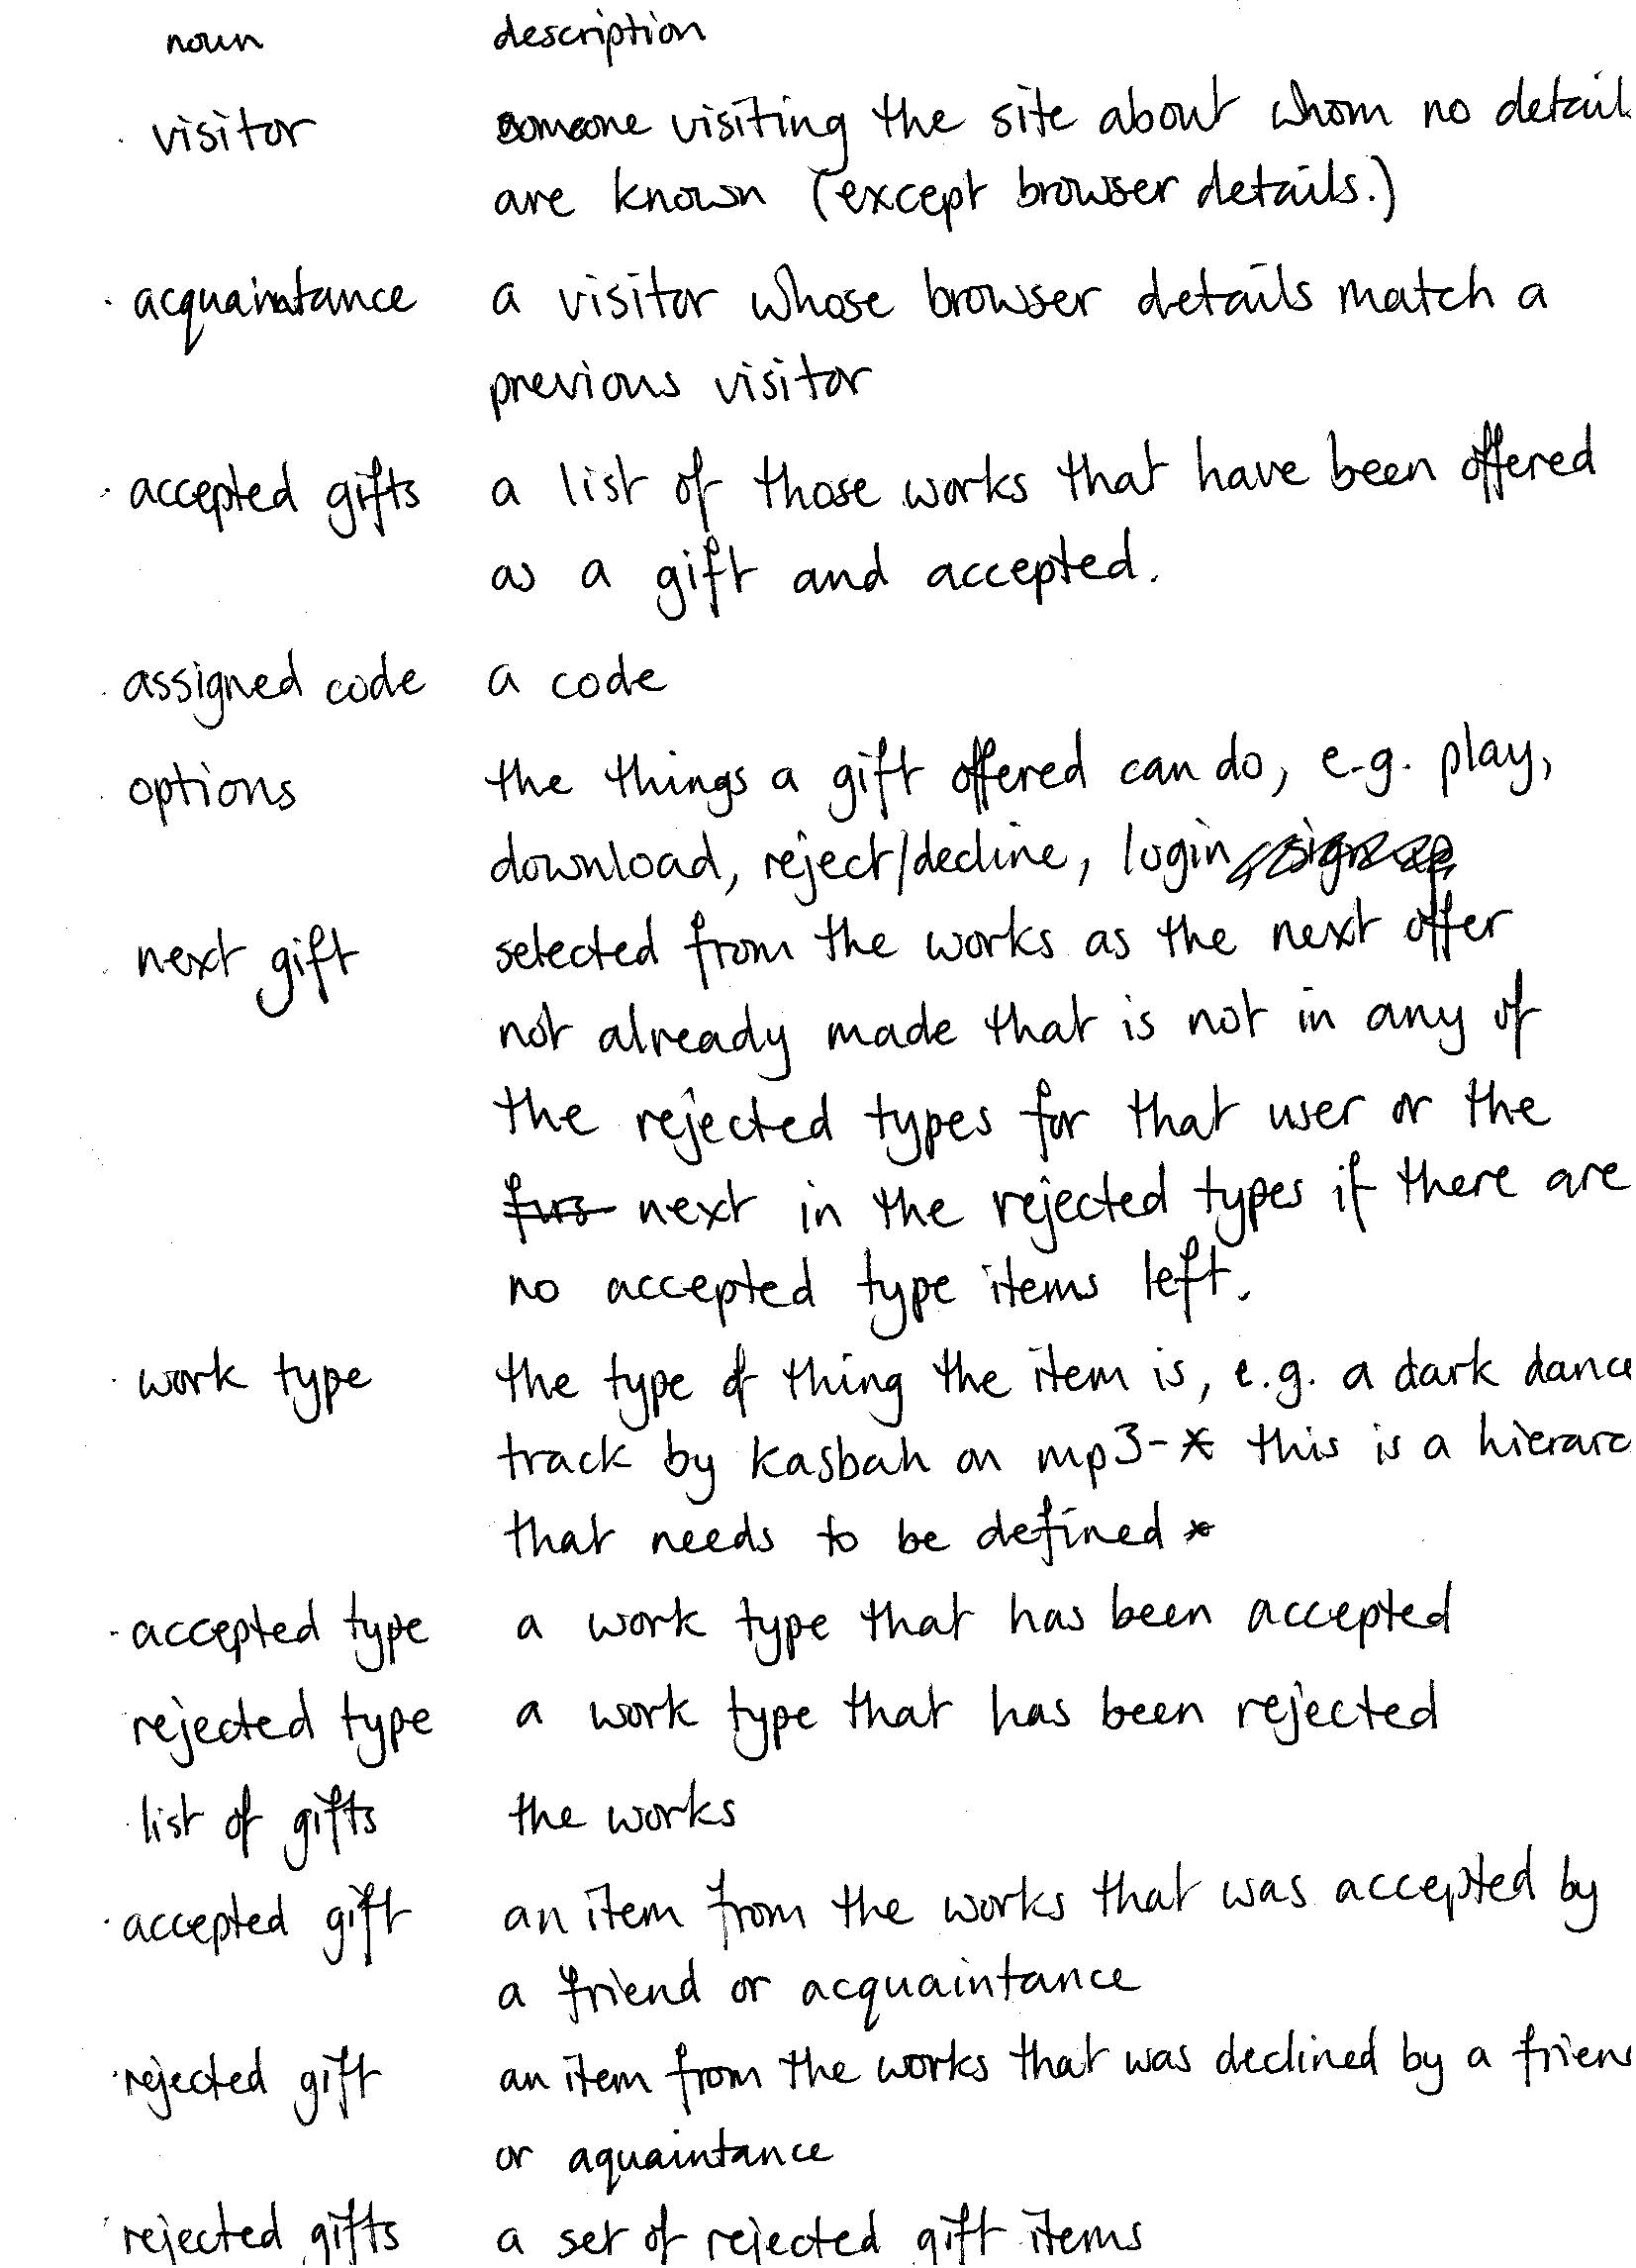 noun description
· visitor someone visiting the site about whom no detail
are known (except browser details.)
· acquaintance a visitor whose browser details match a
previous visitor
· accepted gifts a list of those works that have been offered
as a gift and accepted.
· assigned code a code
· options the things a gift offered can do, e.g. play,
download, reject/decline, login, sign up,
· next gift selected from the works as the next offer
not already made that is not in any of
the rejected types for that user or the
firs next in the rejected types if there are
no accepted type items left.
· work type the type of thing the item is, e.g. a dark dance
track by kasbah on mp3 - * this is a hierarc
that needs to be defined *
· accepted type a work type that has been accepted
· rejected type a work type that has been rejected
· list of gifts the works
· accepted gift an item from the works that was accepted by
a friend or acquaintance
· rejected gift an item from the works that was declined by a frien
or aquaintance
· rejected gifts a set of rejected gift items